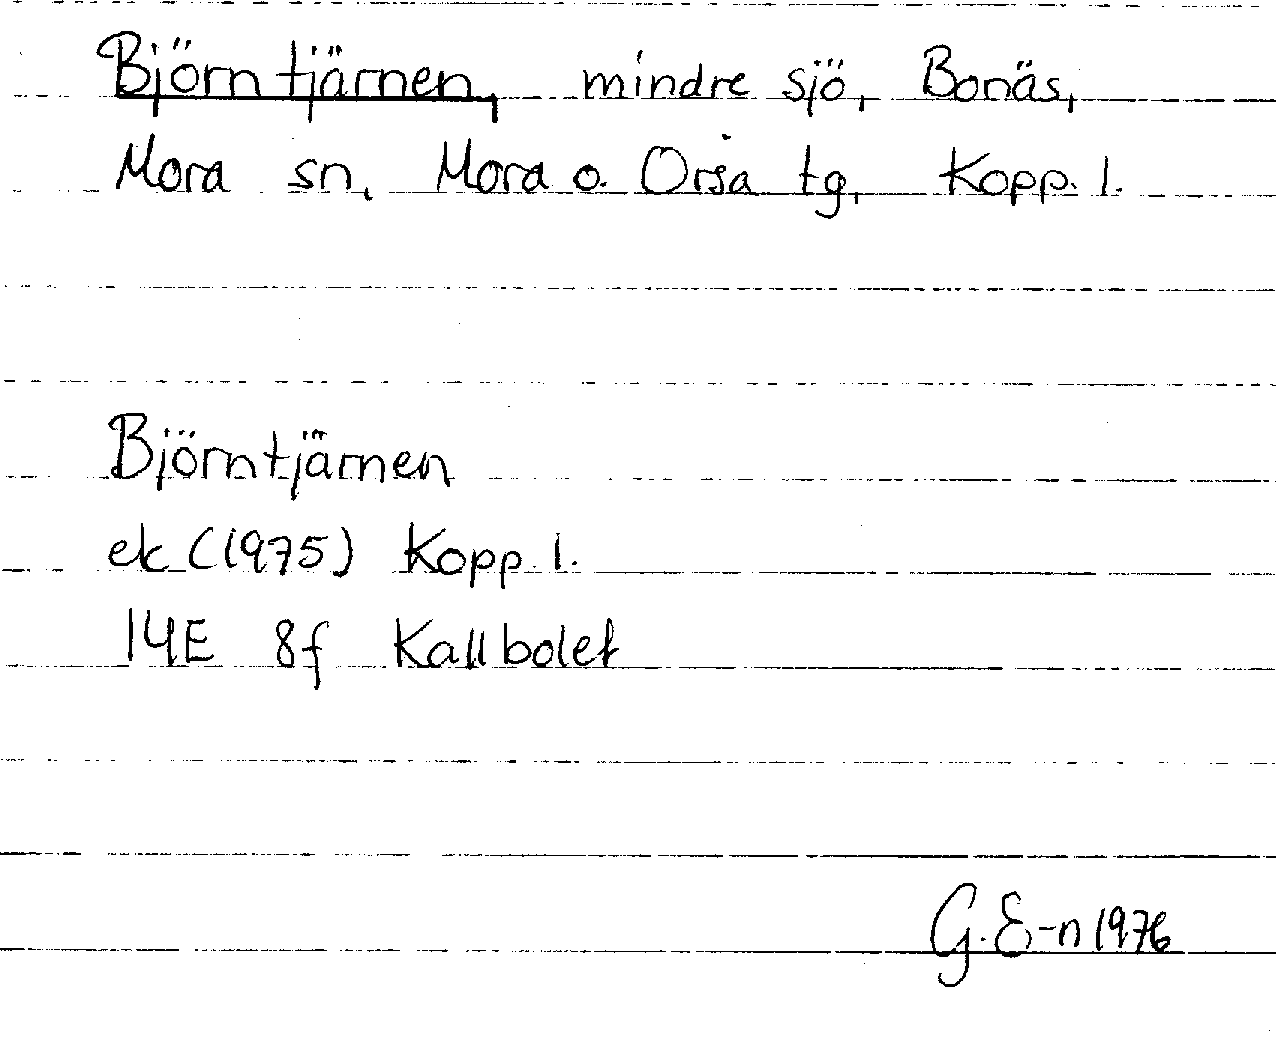 Björntjärnen, mindre sjö, Bonäs,
Mora sn, Mora o. Orsa tg, Kopp. l.
Björntjärnen
ek (1975) Kopp. l.
14E 8f Kallbolet
G. E-n 1976